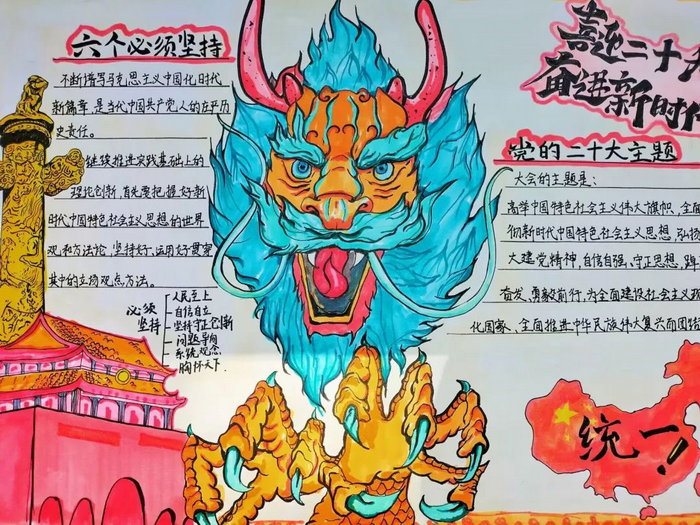 六个必须坚持
不断谱写马克思主义中国化时代
新篇章,是当代中国共产党人的庄严历
史责任。
继续推进实践基础上的
理论创新,首先要把握好新
时代中国特色社会主义思想的世界
观和方法论,坚持好、运用好贯穿
其中的立场观点方法。
必须
坚持
人民至上
自信自立
坚持守正创新
问题导向
系统观念
胸怀天下.
喜迎二十大
奋进新时代
党的二十大主题
大会的主题是:
高举中国特色社会主义伟大旗帜,全面
彻新时代中国特色社会主义思想,弘扬
大建党精神,自信自强、守正思想,踔
奋发、勇毅前行,为全面建设社会主义现
化国家、全面推进中华民族伟大复兴而团结
统一!